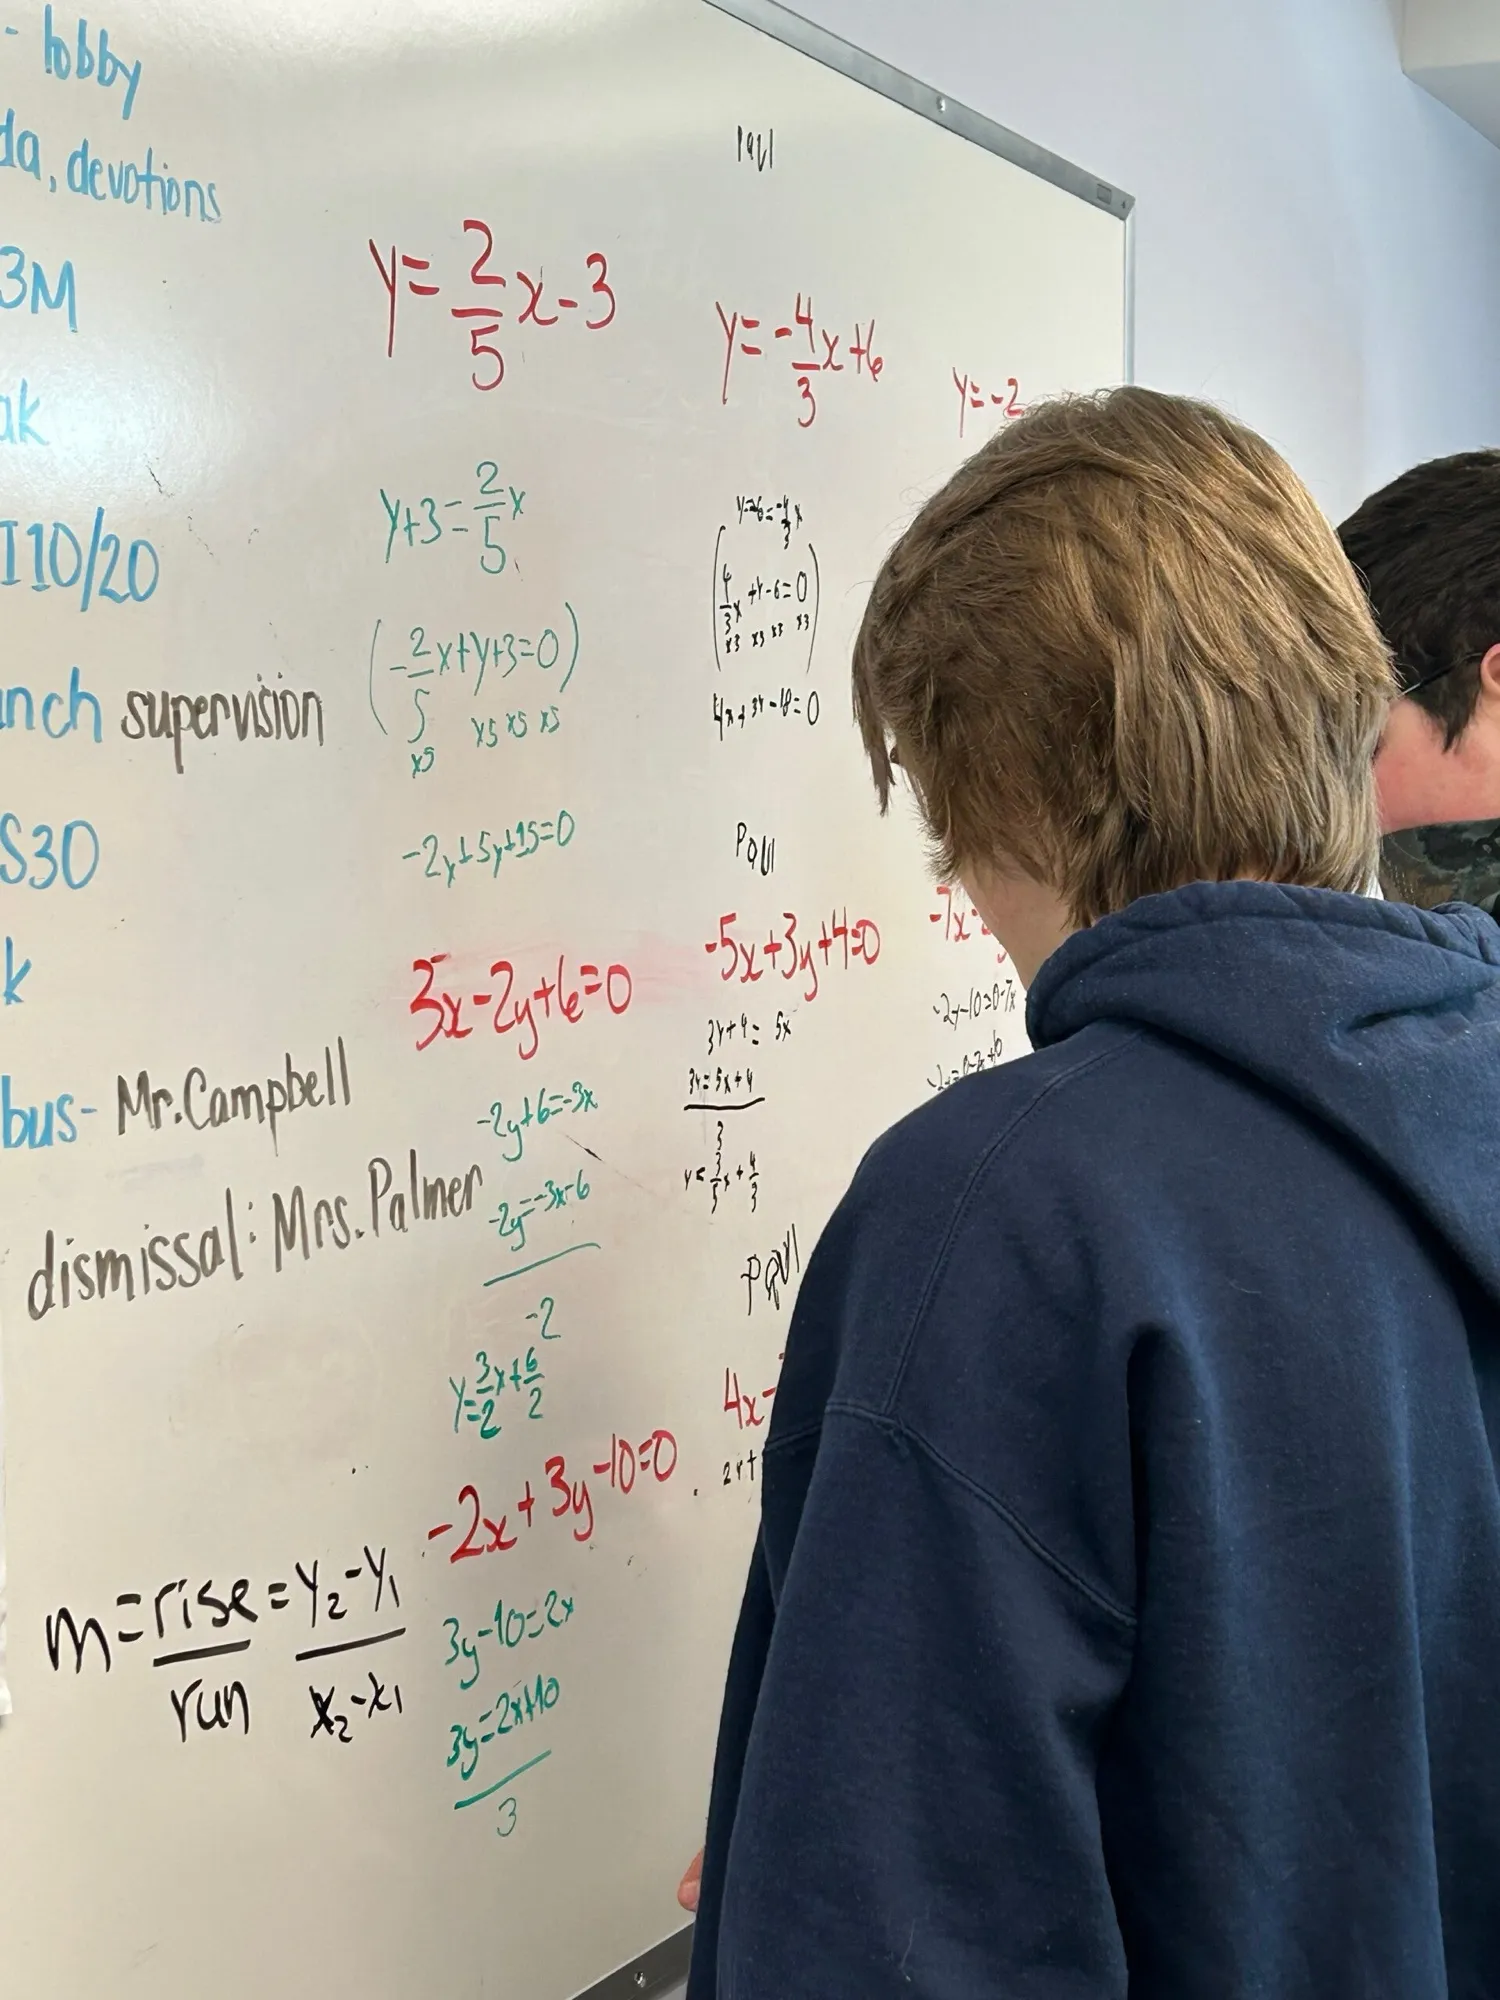 - lobby
da, devotions
3M
ak
I10/20
unch supervision
S30
k
bus- Mr. Campbell
dismissal: Mrs. Palmer
m = rise = y₂-y₁
run x₂-x₁
y = 2/5 x - 3
y+3 = 2/5 x
(-2/5 x+y+3=0)
x5 x5 x5 x5
-2x+5y+15=0
3x-2y+6=0
-2y+6=-3x
-2y=-3x-6
-2
y=3/2 x+6/2
-2x+3y-10=0
3y-10=2x
3y=2x+10
3
Paul
y = -4/3 x +6
(4/3 x +y-6=0)
x3 x3 x3 x3
4x+3y-18=0
Paul
-5x+3y+4=0
3y+4= 5x
3y=5x+4
3
Paul
4x-
2y+
y=-2
-7x-
-2y-10=0-7x